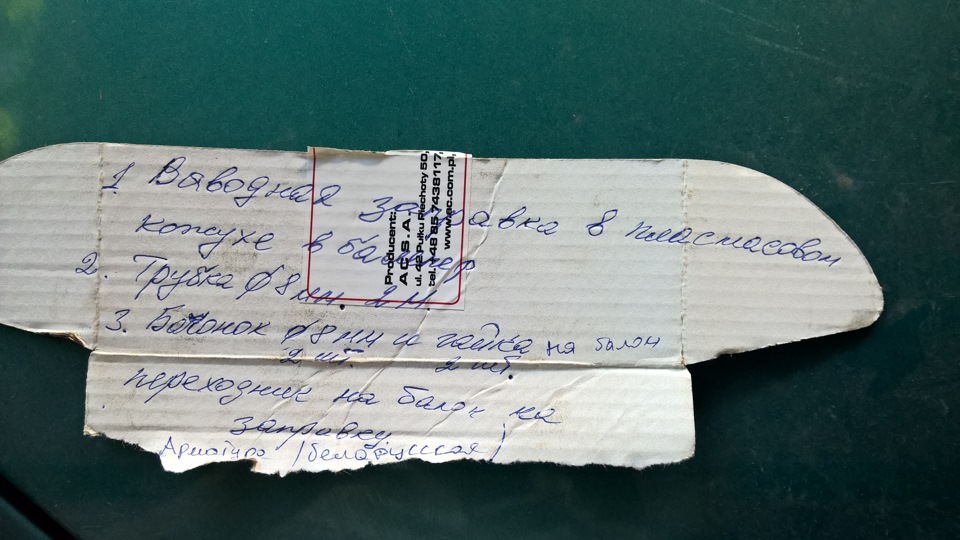 1 Выводная заправка в пласмасовом
кожухе в бампер
2. Трубка ∅ 8 мм. 2 м.
3. Бочонок ∅ 8 мм и гайка на балон
2 шт. 2 шт.
переходник на балон на
заправку.
Арматура (беларусская)
Producent:
AC S.A.
ul. 42 Pułku Piechoty 50,
tel. +48 85 7438117,
www.ac.com.pl,